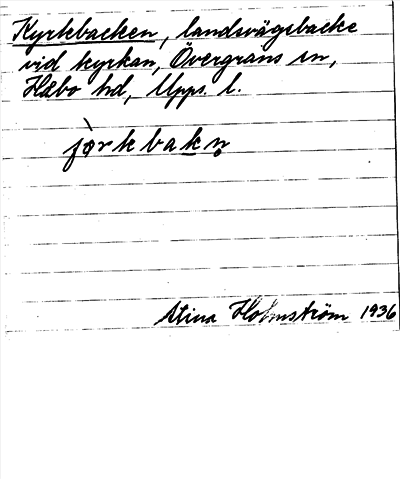 Kyrkebacken, landsvägsbacke
vid kyrkan, Övergrans sn,
Håbo hd, Upps. l.
jørkbakn̥
Stina Holmström 1936